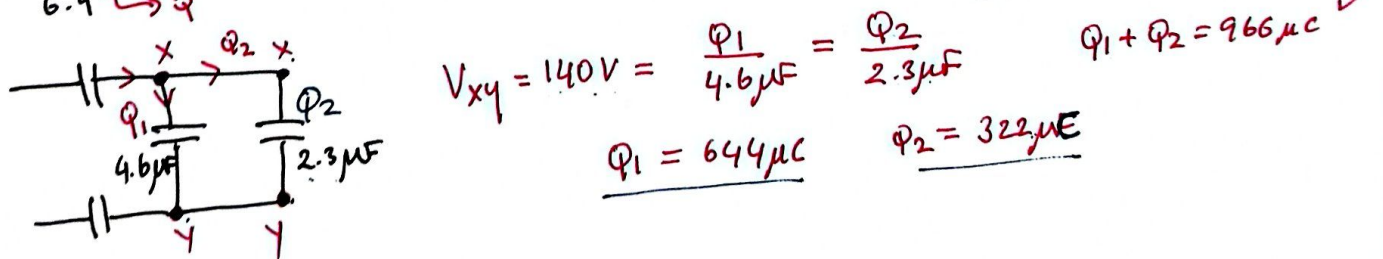 6.9 → Q
X Q2 X.
Q1 Q2
4.6μF 2.3μF
Y Y
Vxy = 140V = Q1/4.6μF = Q2/2.3μF Q1 + Q2 = 966μC
Q1 = 644μC Q2 = 322μE